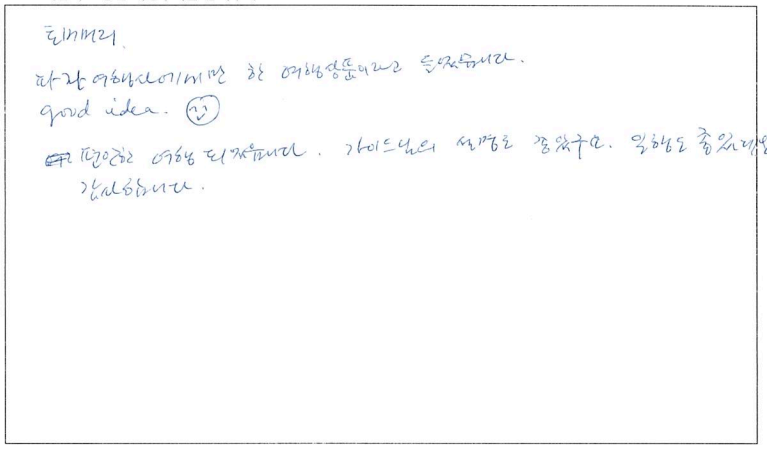 티머머리.
파란여행사에서만 한 여행상품이라고 들었습니다.
good idea.
편안한 여행 되었습니다. 가이드님의 설명도 좋았구요. 일행도 좋았네요
감사합니다.